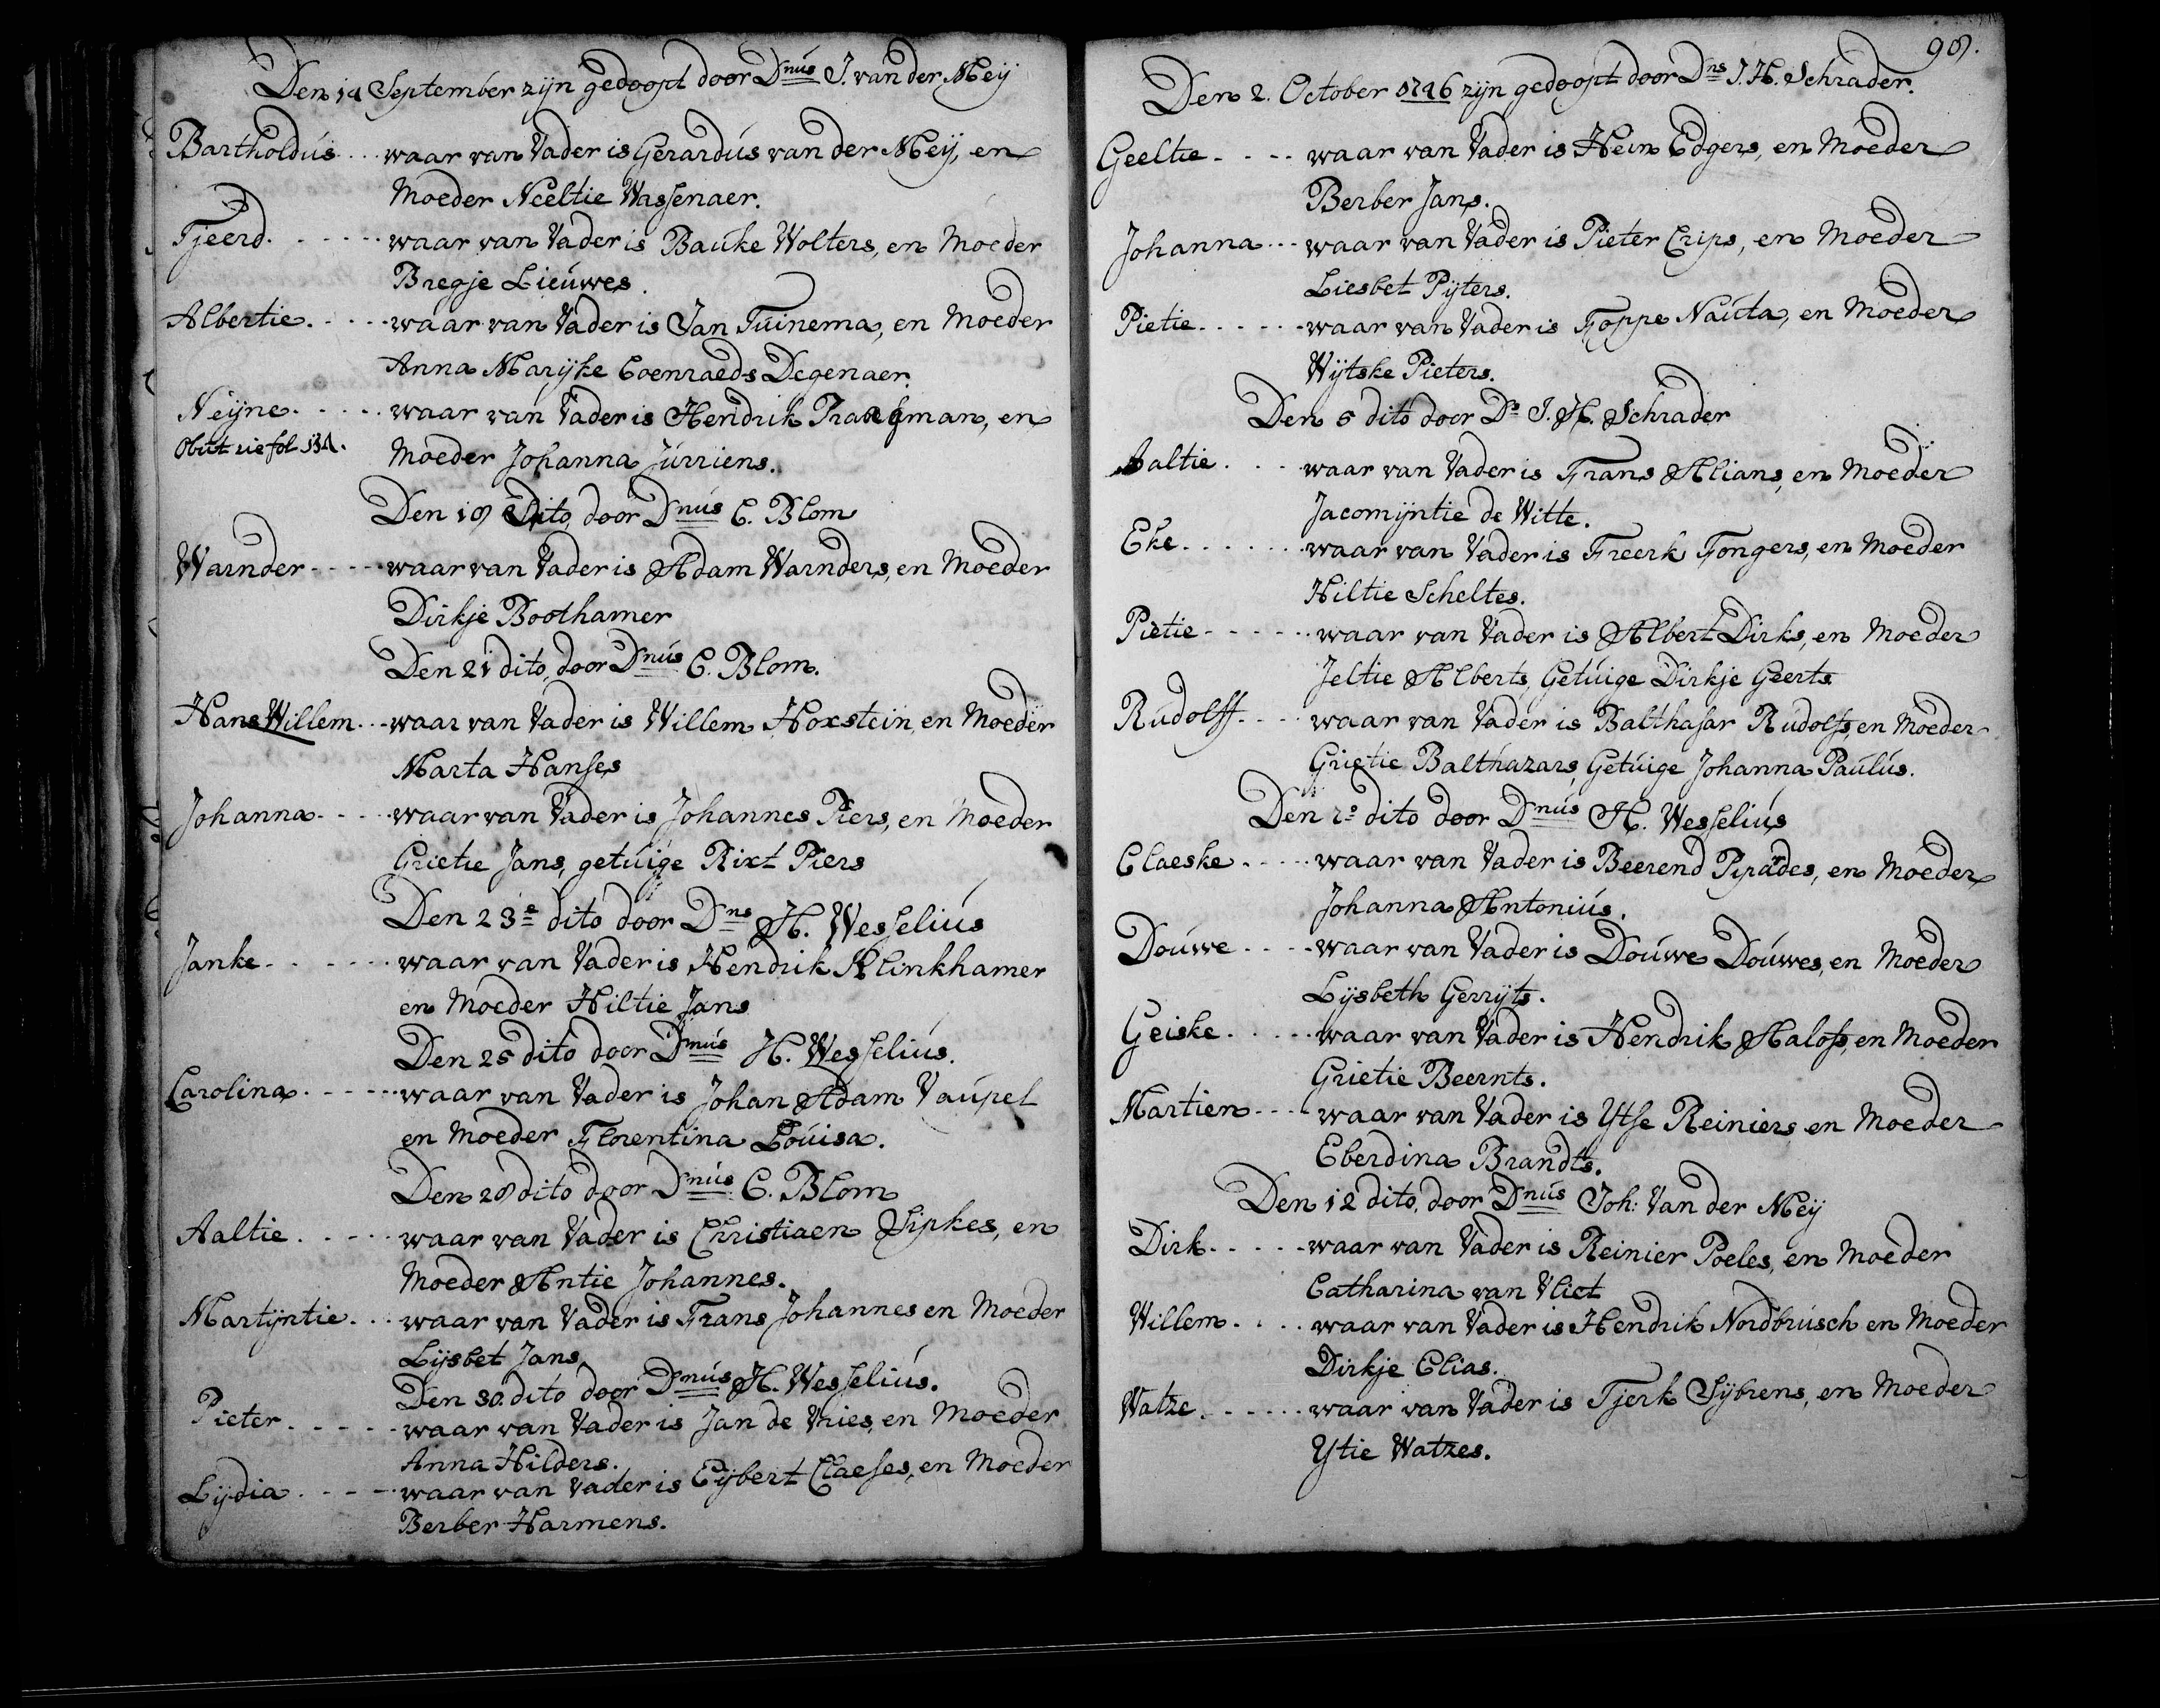 Den 14 September zijn gedoopt door Dnús J. van der Meÿ
Bartholdús waar van Vader is Gerardús van der Meÿ, en
Moeder Neeltie Wassenaer.
Tjeerd waar van Vader is Baúke Wolters, en Moeder
Bregje Lieúwes.
Albertie waar van Vader is Jan Túinema, en Moeder
Anna Marÿke Coenraeds Degenaer.
Neÿne waar van Vader is Hendrik en
Obiit zie fol
Moeder Johanna Júrriens.
Den 18 Dito, door Dnús C. Blom
Warnder waar van Vader is Adam Warnders, en Moeder
Dirkje Boothamer
Den 21 dito, door Dnús C. Blom.
Hans Willem waar van Vader is Willem Hoxstein, en Moeder
Marta Hanses
Johanna waar van Vader is Johannes Piers, en Moeder
Grietie Jans, getúige Rixt Piers
Den 23e dito door Dns H. Wesselius
Janke waar van Vader is Hendrik Klinkhamer
en Moeder Hiltie Jans
Den 25 dito door Dnús H. Wesseliús.
Carolina waar van Vader is Johan Adam Vaúpel
en Moeder Florentina Loúisa.
Den 28 dito door Dnús C. Blom
Aaltie waar van Vader is Christiaen Sipkes, en
Moeder Antie Johannes.
Martÿntie waar van Vader is Frans Johannes en Moeder
Lijsbet Jans
Den 30. dito door Dnús H. Wesseliús.
Pieter waar van Vader is Jan de Vries, en Moeder
Anna Hilders.
Lÿdia waar van Vader is Eÿbert Claeses, en Moeder
Berber Harmens.
98.
Den 2. October 1746 zijn gedoopt door Dns J. H. Schrader.
Geeltie waar van Vader is Hein Edgers, en Moeder
Berber Jans.
Johanna waar van Vader is Pieter Crips, en Moeder
Liesbet Pÿters.
Pietie waar van Vader is Foppe Naúta, en Moeder
Wÿtske Pieters.
Den 5 dito door Ds J. H. Schrader
Aaltie waar van Vader is Frans Alians, en Moeder
Jacomÿntie de Witte.
Eke waar van Vader is Freerk Fongers, en Moeder
Hiltie Scheltes.
Pietie waar van Vader is Albert Dirks, en Moeder
Jeltie Alberts, Getúige Dirkje Geerts
Rúdolff waar van Vader is Balthasar Rúdolfs, en Moeder
Grietie Balthazars, Getúige Johanna Paúlús.
Den dito door Dnús H. Wesseliús
Claeske waar van Vader is Beerend en Moeder
Johanna Antoniús.
Doúwe waar van Vader is Doúwe Doúwes, en Moeder
Lÿsbeth Gerrÿts.
Geiske waar van Vader is Hendrik Halofs, en Moeder
Grietie Beernts.
Martien waar van Vader is Ytse Reiniers, en Moeder
Eberdina Brandts.
Den 12 dito, door Dnús Joh: Van der Meÿ
Dirk waar van Vader is Reinier Poeles, en Moeder
Catharina van Vliet
Willem waar van Vader is Hendrik Nordbrúsch en Moeder
Dirkje Elias.
Watze waar van Vader is Tjerk Sÿbrens, en Moeder
Ytie Watzes.